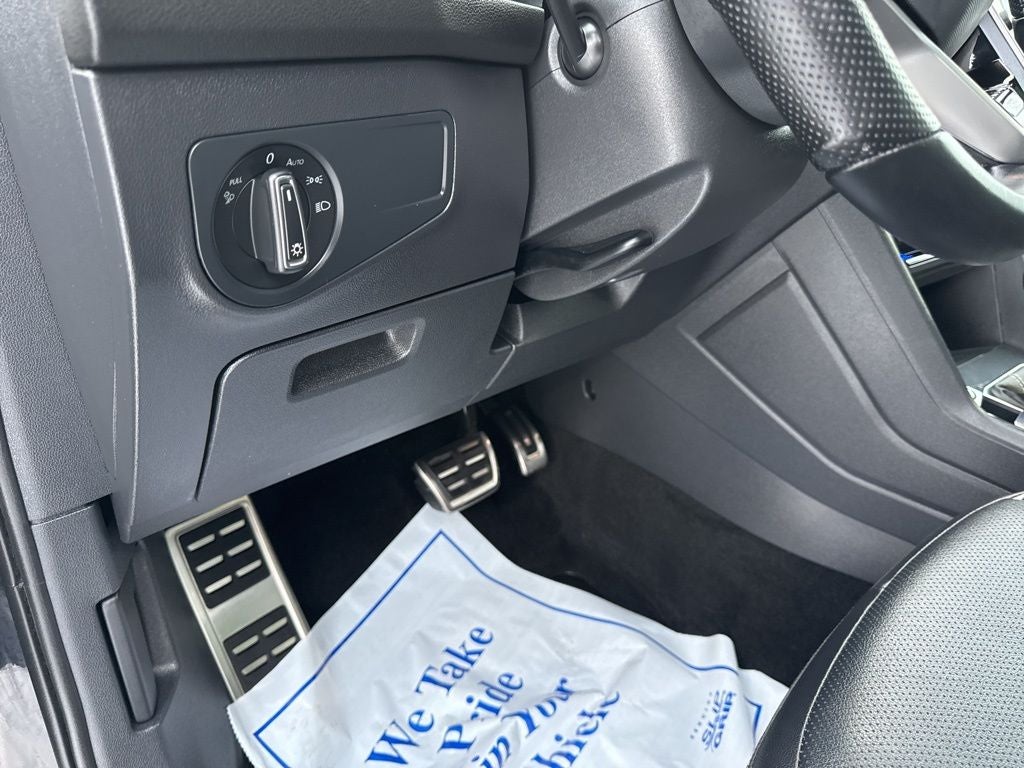 0 AUTO
PULL
We Take
Pride
in Your
Vehicle
SLIP
GRIP